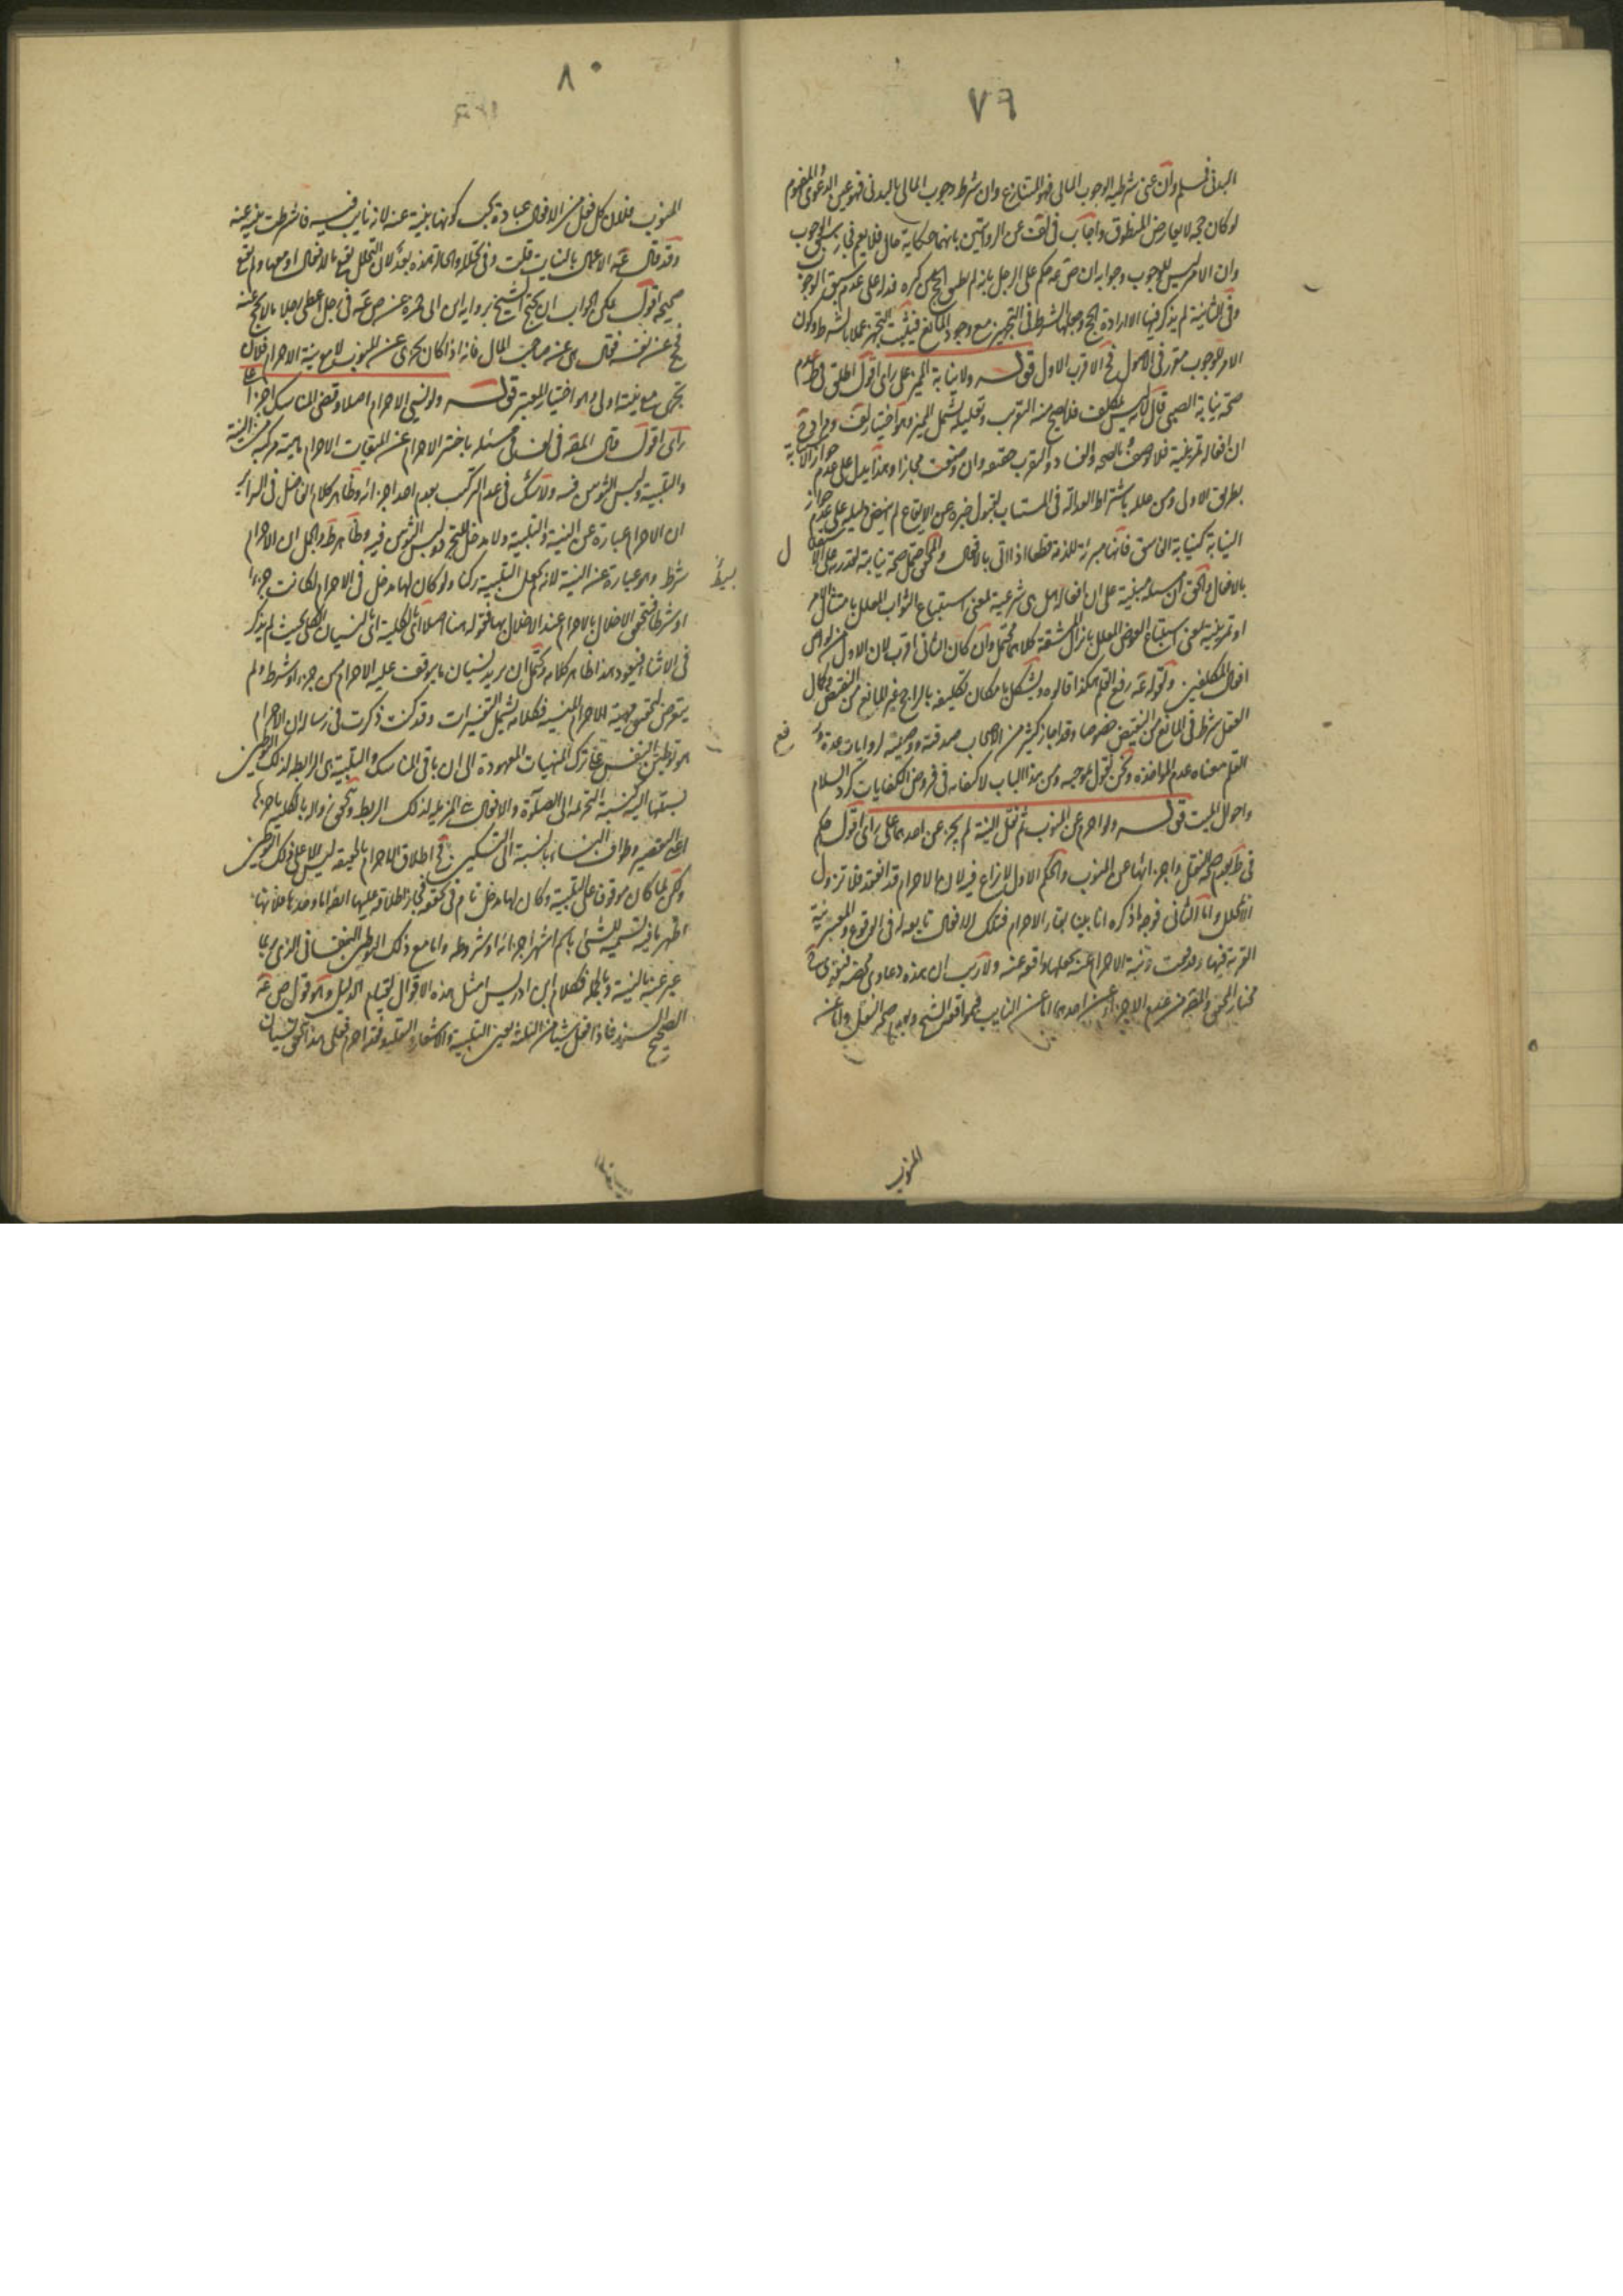 ٧٩
البدنى فسلم وان عنى شرطية الوجوب المالى فهو المتنازع وان شرط وجوب المالى بالبدنى فهو عين الدعوى المفهوم
لو كان حجة لا يعارض المنطوق واجاب فى لف عن الروايتين بانهما حكاية حال فلا يعم فجاز سبق الوجوب
وان الامر ليس للوجوب وجوابه ان ص عه حكم على الرجل بانه لم يطق الحج من كبره فدل على عدم سبق الوجوب
وفى الثانية لم يذكر فيها الا ارادة الحج وجعلها الشرط فى التجهيز مع وجود المانع فيثبت التجهيز عملا بالشرط وكون
الامر للوجوب مقرر فى الاصول فح الاقرب الاول قوله ولا نيابة المميز على راى اقول اطلق فى ط عدم
صحة نيابة الصبى قال لانه ليس بمكلف فلا يصح منه التقرب وتعليله يشمل المميز وهو اختيار لف ومرادى ح
ان افعاله تمرينية فلا توصف بالصحة والفساد والتقرب حقيقة وان وصفت مجازا وهذا يدل على عدم جواز النيابة
بطريق الاولى ومن علله باشتراط العدالة فى المستناب لقبول خبره عن الايقاع لم ينهض دليله على عدم جواز
النيابة كنيابة الفاسق فانها مبرئة للذمة قطعا اذا اتى بالافعال والمحقق احتمل صحة نيابته لقدرته على الاستقلال
بالافعال والحق ان المسئلة مبنية على ان افعاله هل هى شرعية بمعنى استتباع الثواب المعلل بامتثال الامر
او تمرينية بمعنى استتباع العوض المعلل بازاء المشقة كلاهما محتمل وان كان الثانى اقرب لان الاول من لواحق
افعال المكلفين ولقوله عه رفع القلم هكذا قالوه ويشكل بامكان تكليفه بالراجح غير المانع من النقيض وكمال
العقل شرط فى المانع من النقيض خصوصا وقد اجاز كثير من الاصحاب صدقته ووصيته لروايات عدة ورفع
القلم معناه عدم المواخذة ونحن نقول بموجبه ومن هذا الباب الاكتفاء به فى فروض الكفايات كرد السلام
واحوال الميت قوله ولو احرم عن المنوب ثم نقل النية لم يجز عن احدهما على راى اقول حكم
فى ط بعدم صحة النقل واجزائها عن المنوب والحكم الاول لا نزاع فيه لان الاحرام قد انعقد فلا تزول
الا بمحلل واما الثانى فوجه ما ذكره انا بينا بقاء الاحرام فتلك الافعال تابعة له فى الوقوع والمعتبر نية
القربة فيها وقد وقعت ونية الاحرام عنه يجعلها واقعة عنه ولا ريب ان هذه دعاوى محضة فتوى
مختار المحقق والمص من عدم الاجزاء عن احدهما اما عن النايب فبموافقة الشيخ وبعدم صحة النقل واما عن
المنوب
٨٠
المنوب فلان كل فعل من الافعال عبادة يجب كونها بنية عنه لانه نايب فيه فاشترطت بنية عنه
وقد قال عه الاعمال بالنيات قلت وفى تحلله والحالة هذه بعد لان التحلل يقع بالافعال او معها ولم تقع
صحيحة اقول يمكن الجواب ان يحتج الشيخ برواية ابن ابى حمزة عن ص عه فى رجل اعطى رجلا مالا يحج عنه
فحج عن نفسه فقال هى عن صاحب المال فانه اذا كان يجزى عن المنوب لا مع نية الاحرام فلان
تجزى مع نيته اولى وهو اختيار المعتبر قوله ولو نسى الاحرام اصلا وقضى المناسك اجزأ على
راى اقول قال المص فى لف فى مسئلة تاخير الاحرام عن الميقات الاحرام ماهية مركبة من النية
والتلبية ولبس الثوبين فيه ولا شك فى عدم المركب بعدم احد اجزائه وظاهر كلام الفاضل فى السرائر
ان الاحرام عبارة عن النية والتلبية ولا مدخل للتجرد ولبس الثوبين فيه وظاهر ط والجمل ان الاحرام بسيط
شرط وهو عبارة عن النية لانه جعل التلبية ركنا ولو كان لها مدخل فى الاحرام لكانت جزءا
او شرطا فتحقق الاخلال بالاحرام عند الاخلال بها فقوله هنا اصلا اى بالكلية اى بالنسيان الكلى بحيث لم يذكر
فى الاثناء فيعود هذا ظاهر كلامه ويحتمل ان يريد نسيان ما يتوقف عليه الاحرام من جزء او شرط ولم
يتعرض لتحقيق مهية الاحرام المنسية فكلامه يشمل التفسيرات وقد كنت ذكرت فى رسالة ان الاحرام
هو توطين النفس على ترك المنهيات المعهودة الى ان ياتى المناسك والتلبية هى الرابطة لذلك التوطين
نسبتها اليه كنسبة التحريمة الى الصلوة والافعال هى المزيلة لذلك الربط ويتحقق زواله بالكلية باخرها
اعنى التقصير وطواف النساء بالنسبة الى النسكين فح اطلاق الاحرام بالحقيقة ليس الا على ذلك التوطين
ولكن لما كان موقوفا على التلبية وكان لها مدخل تام فى تحققه فجاز اطلاقه عليها ايضا اما وحدها فلانها
اظهر ما فيه تسمية للشئ باسم اشهر اجزائه او شروطه واما مع ذلك التوطين النفسانى الذى ربما
عبر عنه بالنية وبالجملة فكلام ابن ادريس امثل هذه الاقوال لقيام الدليل وهو قول ص عه
الصحيح السند فاذا فعل شيئا من الثلثة يعنى التلبية والاشعار والتقليد فقد احرم فعلى هذا يتحقق نسيان